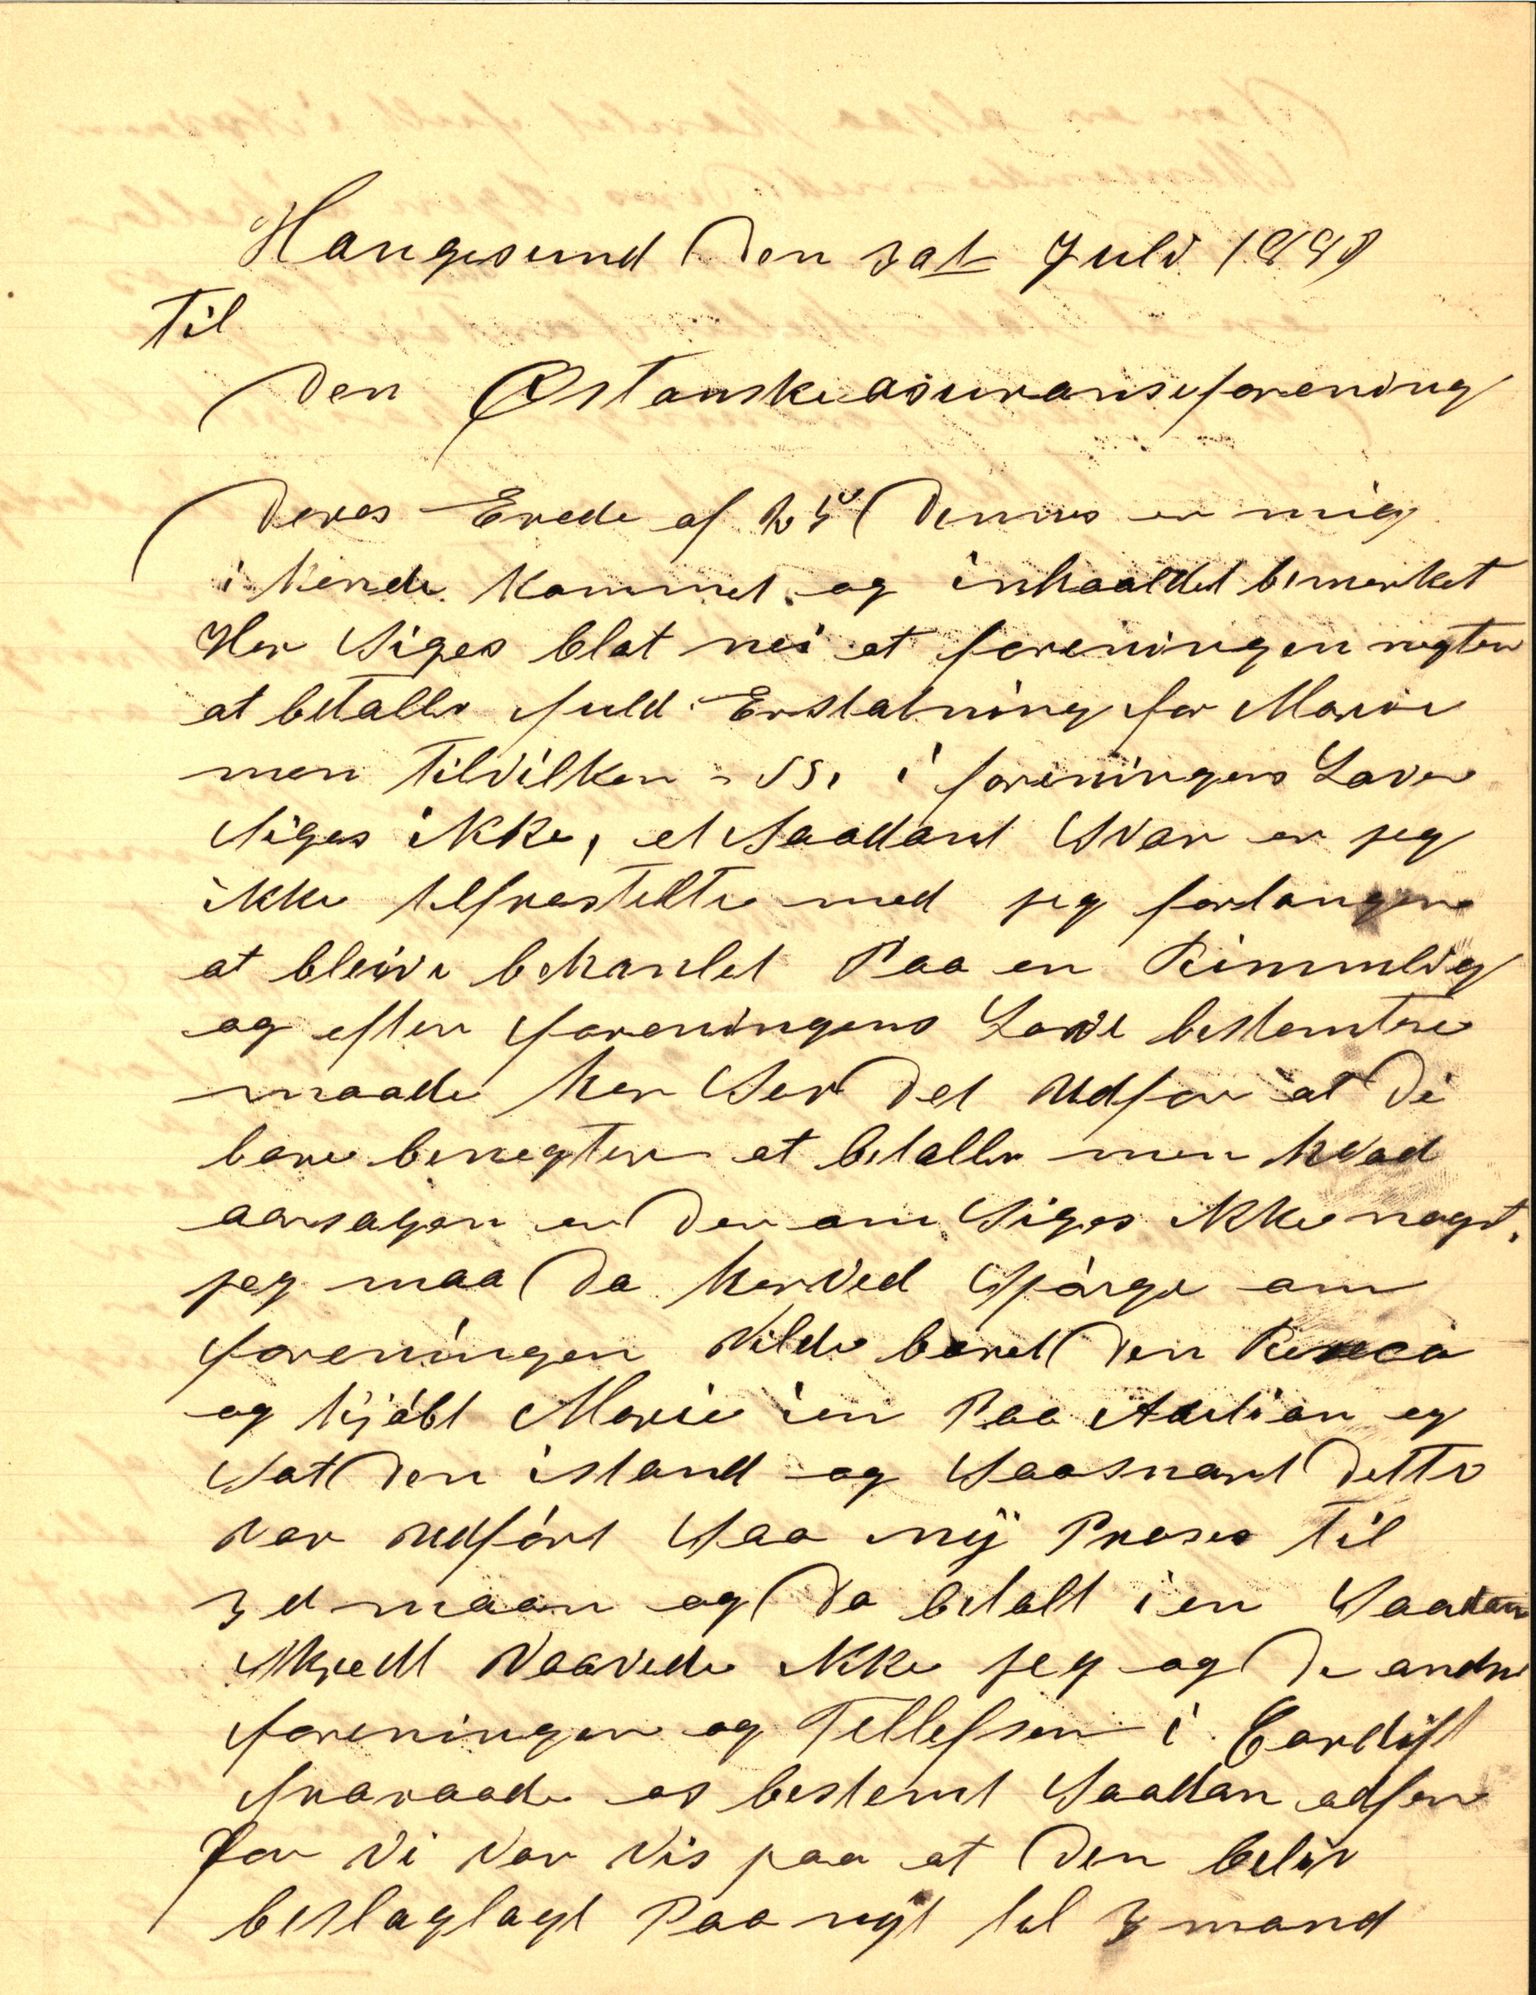 Haugesund Den 30te Juli 1898
Til
Den Østlanske asuranseforening
Deres Erede af 25 Dennes er mig
i hende kommet og inhaaldet bemerket
Her siges blot nei at foreningen negter
at betalle fuld Erstatning for Marie
men tilvilken i foreningens Lover
siges ikke, et saadant svar er jeg
ikke tilfrestelte med jeg forlanger
at bleive behanlet Paa en Rimmlig
og efter foreningens Love bestemtere
maade her ser det udfor at Di
bare benegter at betaller men hvad
aarsagen er der om siges ikke nogt.
jeg maa da herved spörge om
foreningen vilde beret den
og kjöbt Marie ien Paa Auktion og
sat den istand og saasnart dette
var udfört saa nÿ Proses til
3d maan og da betalt ien saadan
skjedt vaavede ikke jeg og de andre
foreninger og Tellefsen i Cardift
fraraade os bestemt saadan adfer
for vi var vis paa at den beliv
beslaglagt Paa nyt til 3 mand